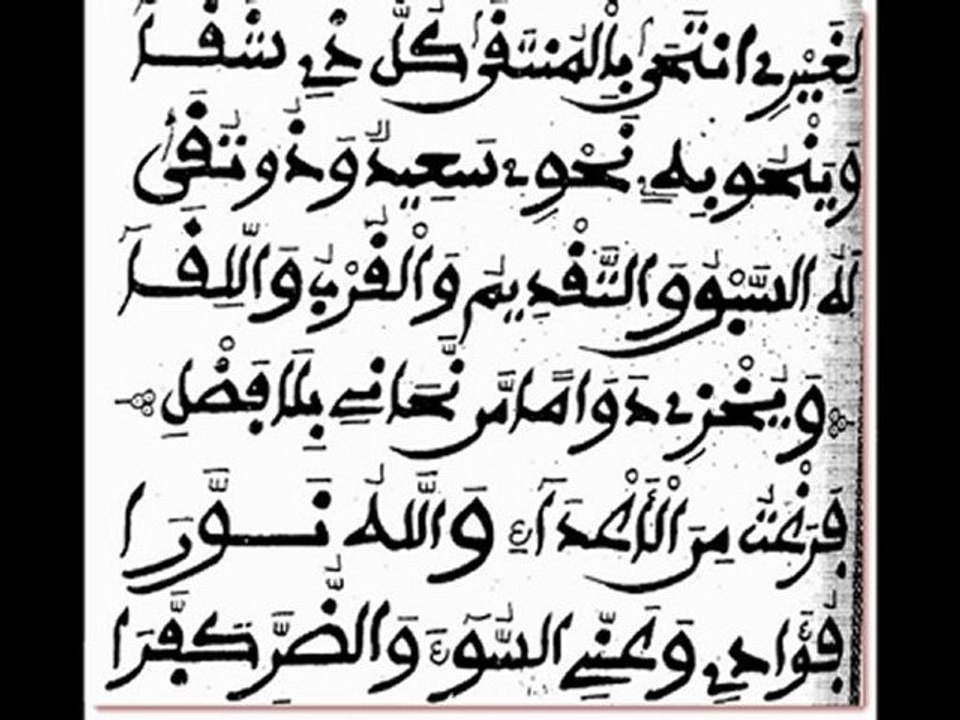 لِغَيْرِے انْتَحَى بِالْمُنْتَقَى كُلُّ ذِے شَقَا
وَيَنْحُو بِهِ نَحْوِے سَعِيدٌ وَذُو تُقَى
لَهُ السَّبْقُ وَالتَّقْدِيمُ وَالْقُرْبُ وَاللِّقَا
وَيُخْزِے دَوَامًا مَّن نَّحَانِے بِلَا فَضْلِ
فَرَغْتُ مِنَ الْأَعْدَآءِ وَاللَّهُ نَوَّرَا
فُؤَادِے وَعَنِّے السُّوٓءَ وَالضُّرَّ كَفَّرَا